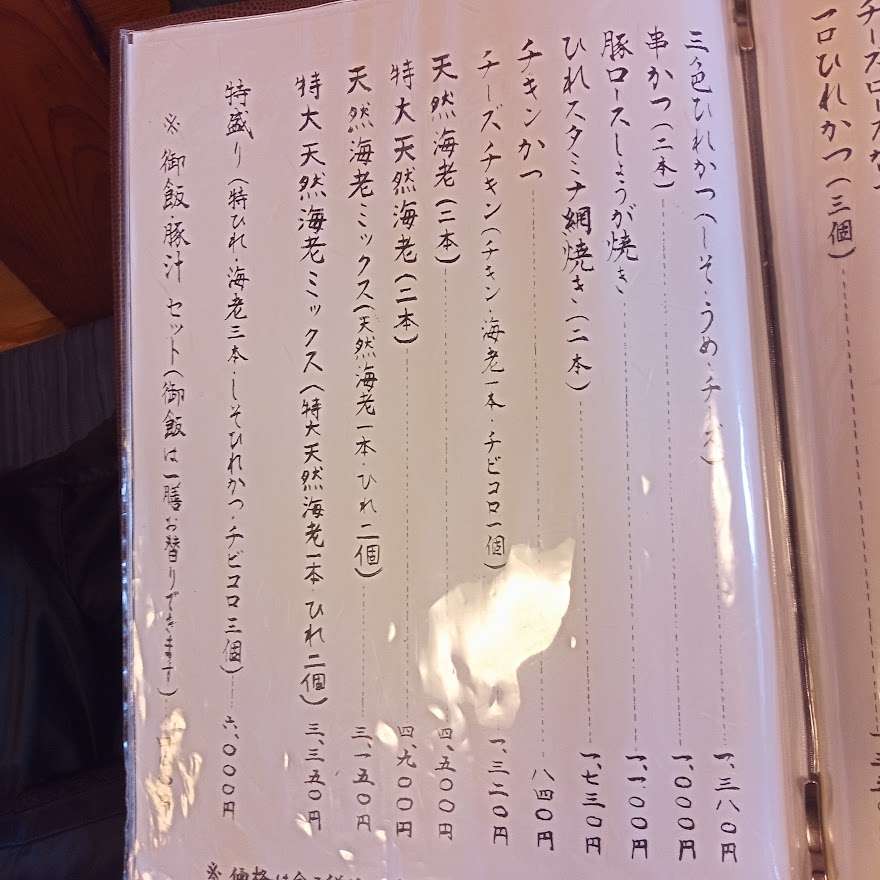 一口ひれかつ(三個)
三色ひれかつ(しそ・うめ・チーズ) 一、三八〇円
串かつ(二本) 一、〇〇〇円
豚ロースしょうが焼き 一、一〇〇円
ひれスタミナ網焼き(二本) 一、七三〇円
チキンかつ 八四〇円
チーズチキン(チキン・海老一本・チビコロ一個) 一、三二〇円
天然海老(二本) 四、五〇〇円
特大天然海老(二本) 四、九〇〇円
天然海老ミックス(天然海老一本・ひれ二個) 三、一五〇円
特大天然海老ミックス(特大天然海老一本・ひれ二個) 三、三五〇円
特盛り(特ひれ・海老三本・しそひれかつ・チビコロ三個) 六、〇〇〇円
※御飯・豚汁セット(御飯は一膳お替りできます)
※価格は